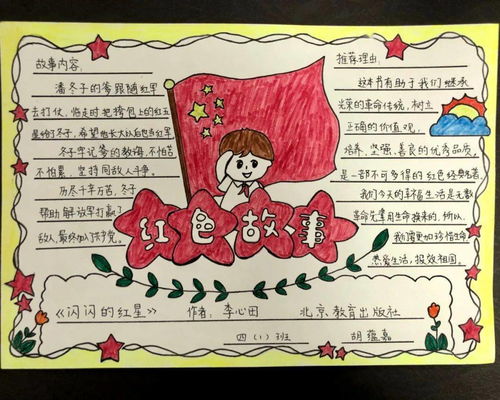 故事内容:
潘冬子的爹跟随红军
去打仗,临走时把挎包上的红五
星给了冬子,希望他长大以后也当红军。
冬子牢记爹的教诲,不怕苦
不怕累,坚持同敌人斗争。
历尽千辛万苦,冬子
帮助解放军打赢了
敌人,最终加入共产党。
红色故事
推荐理由:
这本书有助于我们继承
光荣的革命传统,树立
正确的价值观,
培养坚强、善良的优秀品质,
是一部不可多得的红色经典著
我们今天的幸福生活是无数
革命先辈用生命换来的,所以,
我们要更加珍惜生命
热爱生活,报效祖国。
《闪闪的红星》 作者:李心田 北京教育出版社
四(1)班 胡蕴嘉